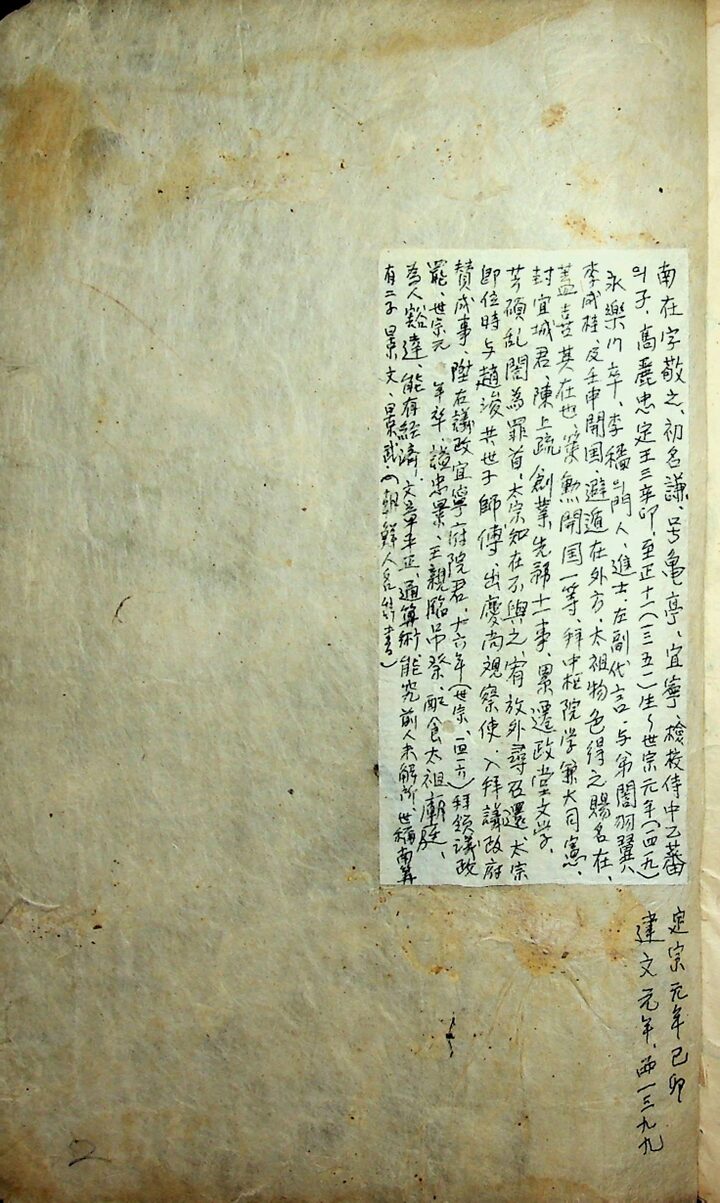 南在字敬之、初名謙、号亀亭、宜寧、檢校侍中乙蕃
의子、高麗忠定王三辛卯、至正十一(一三五一)生~世宗元年(一四一九)
永樂 卒、李穡의門人、進士、左副代言、与弟誾羽翼
李成桂、及壬申開国、避遁在外方、太祖物色得之賜名在、
蓋喜其在也、策勲開国一等、拜中枢院学兼大司憲、
封宜城君、陳上疏創業先務十一事、累遷政堂文学、
芳碩乱誾為罪首、太宗知在不與之、宥放外尋召還、太宗
即位時与趙浚共世子師傅、出慶尚観察使、入拜議政府
賛成事、陞右議政宜寧府院君、廿六年(世宗、一四一六)拜領議政
罷、世宗元年卒、諡忠景、王親臨吊祭、配食太祖廟庭、
為人豁達、能存経済、文章平正、通算術、能究前人未解所、世稱南算
有二子景文、景武、(朝鮮人名辞書)
定宗元年己卯
建文元年、西一三九九
2